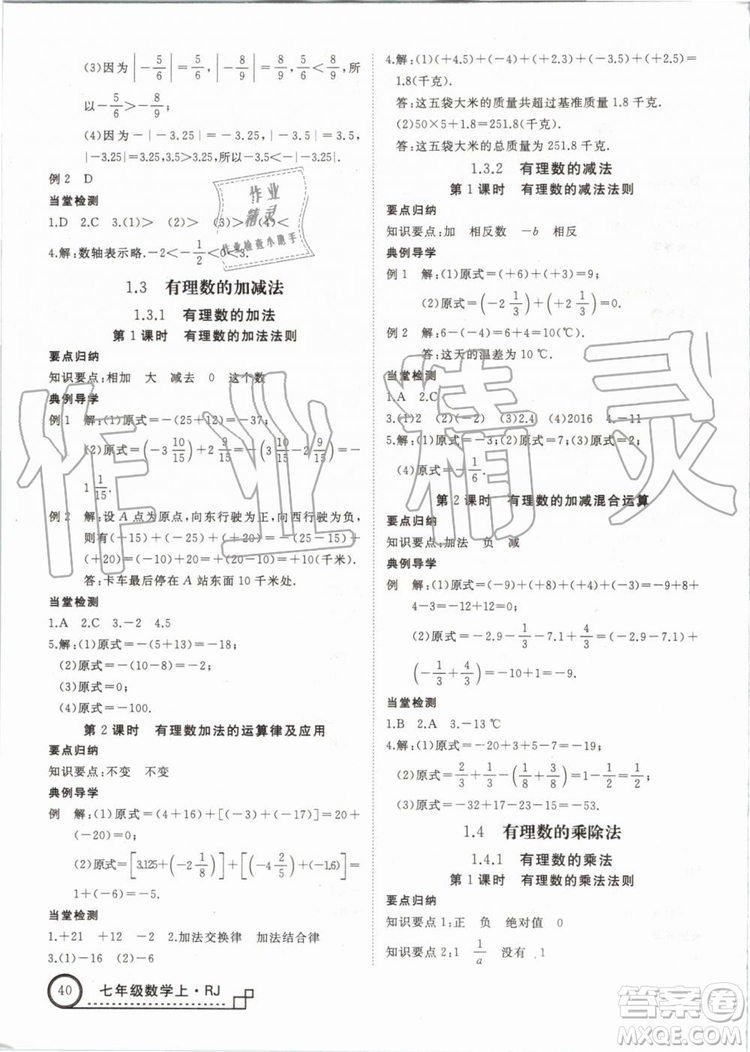 (3)因为|-5/6|=5/6,|-8/9|=8/9,5/6<8/9,所
以-5/6>-8/9;
(4)因为-|-3.25|=-3.25,-|-3.5|=-3.5,
|-3.25|<|-3.5|,所以-3.25>-|-3.5|.
例2 D
当堂检测
1.D 2.C 3.(1)> (2)> (3)> (4)<
4.解:数轴表示略.-2<-1/2<0<3.
1.3 有理数的加减法
1.3.1 有理数的加法
第1课时 有理数的加法法则
要点归纳
知识要点:相加 大 减去 0 这个数
典例导学
例1 解:(1)原式=-(25+12)=-37;
(2)原式=(-3 10/15)+2 9/15=-(3 10/15-2 9/15)=-
1 1/15.
例2 解:设A点为原点,向东行驶为正,向西行驶为负,
则有(-15)+(-25)+(+20)+(+30)=-(25+15)+
(+20)+(+30)=(-40)+(+50)=+10(千米).
答:卡车最后停在A站东面10千米处.
当堂检测
1.A 2.C 3.-2 4.5
5.解:(1)原式=-(5+13)=-18;
(2)原式=-(10-8)=-2;
(3)原式=0;
(4)原式=-8.
第2课时 有理数加法的运算律及应用
要点归纳
知识要点:不变 不变
典例导学
例 解:(1)原式=(4+16)+[(-3)+(-17)]=20+
(-20)=0;
(2)原式=[3.125+(-2 1/8)]+[(-4 2/5)+(-1.6)]=
1+(-6)=-5.
当堂检测
1.+21 +12 -2 2.加法交换律 加法结合律
3.(1)-16 (2)-5
40 七年级数学上·RJ
4.解:(1)(+4.5)+(-4)+(+2.3)+(-3.5)+(+2.5)=
1.8(千克).
答:这五袋大米的质量共超过基准质量1.8千克.
(2)50×5+1.8=251.8(千克).
答:这五袋大米的总质量为251.8千克.
1.3.2 有理数的减法
第1课时 有理数的减法法则
要点归纳
知识要点:加 相反数 -b 相反数
典例导学
例1 解:(1)原式=(+6)+(+3)=9;
(2)原式=(-2 1/3)+(+2 1/3)=0.
例2 解:6-(-4)=6+4=10(℃).
答:这天的温差为10℃.
当堂检测
1.A 2.C
3.(1)2 (2)(-2) (3)2.4 (4)2016 4.-11
5.解:(1)原式=-8;(2)原式=7;(3)原式=2;
(4)原式=-1/6.
第2课时 有理数的加减混合运算
要点归纳
知识要点:加法 负 减
典例导学
例 解:(1)原式=(-9)+(+8)+(-4)+(-3)=-9+8+
4-3=-12+12=0;
(2)原式=-2.9-1/3-7.1+4/3=-2.9-7.1+
(-1/3+4/3)=-10+1=-9.
当堂检测
1.B 2.A 3.-13℃
4.解:(1)原式=-20+3+5-7=-19;
(2)原式=1 2/3+2 1/3-3/2+1=4-1/2=3 1/2;
(3)原式=-32+17-23-15=-53.
1.4 有理数的乘除法
1.4.1 有理数的乘法
第1课时 有理数的乘法法则
要点归纳
知识要点1:正 负 绝对值 0
知识要点2:1 1/a 没有 1
作业
精灵
作业检查小助手
作业精灵
答案圈
MXQE.COM